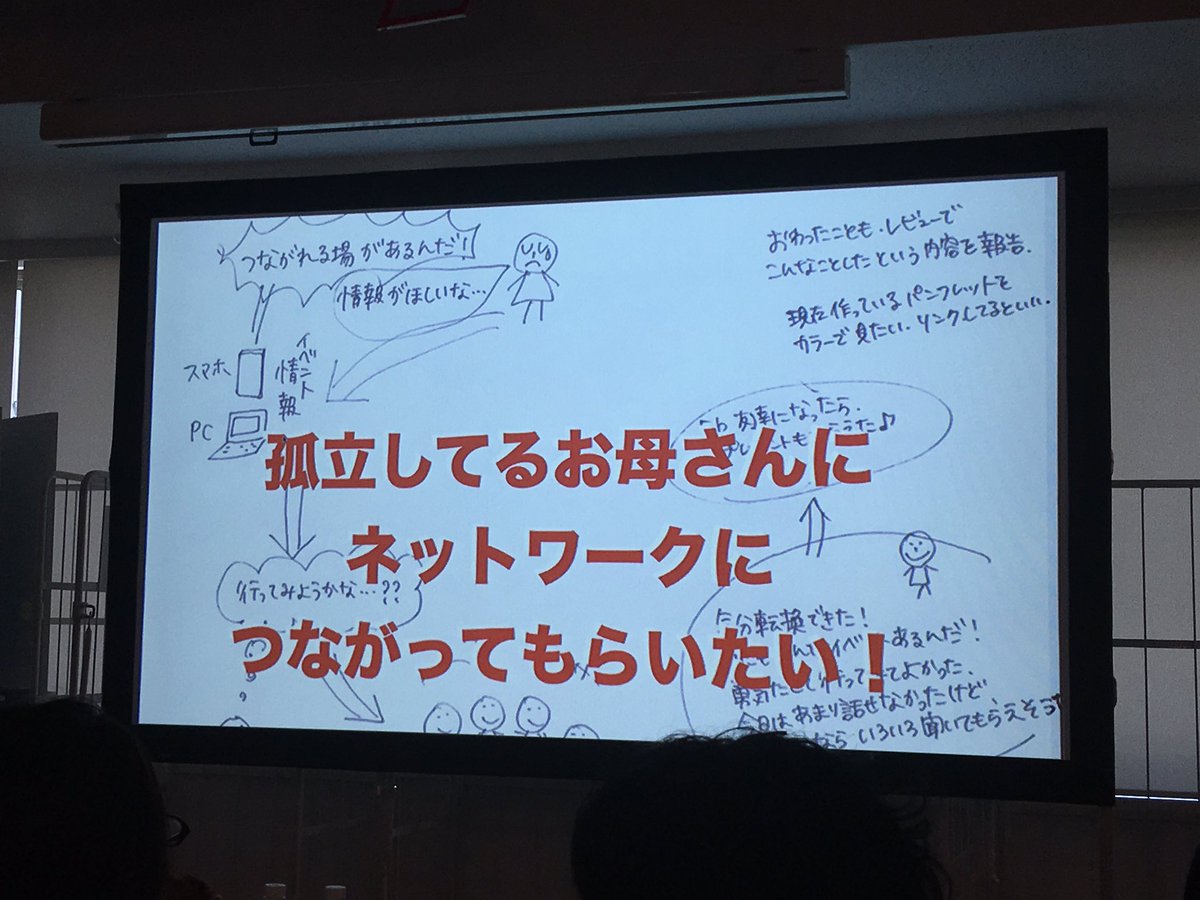 つながれる場があるんだ!
情報がほしいな…
おわったことも、レビューで
こんなことしたという内容を報告.
現在作っているパンフレットを
カラーで見たい. リンクしてるといい.
スマホ
イベント
情報
PC
になったら、
孤立してるお母さんに
ネットワークに
つながってもらいたい!
行ってみようかな…??
分転換できた!
あるんだ!
よかった.
今日はあまり話せなかったけど
なら いろいろ聞いてもらえそう